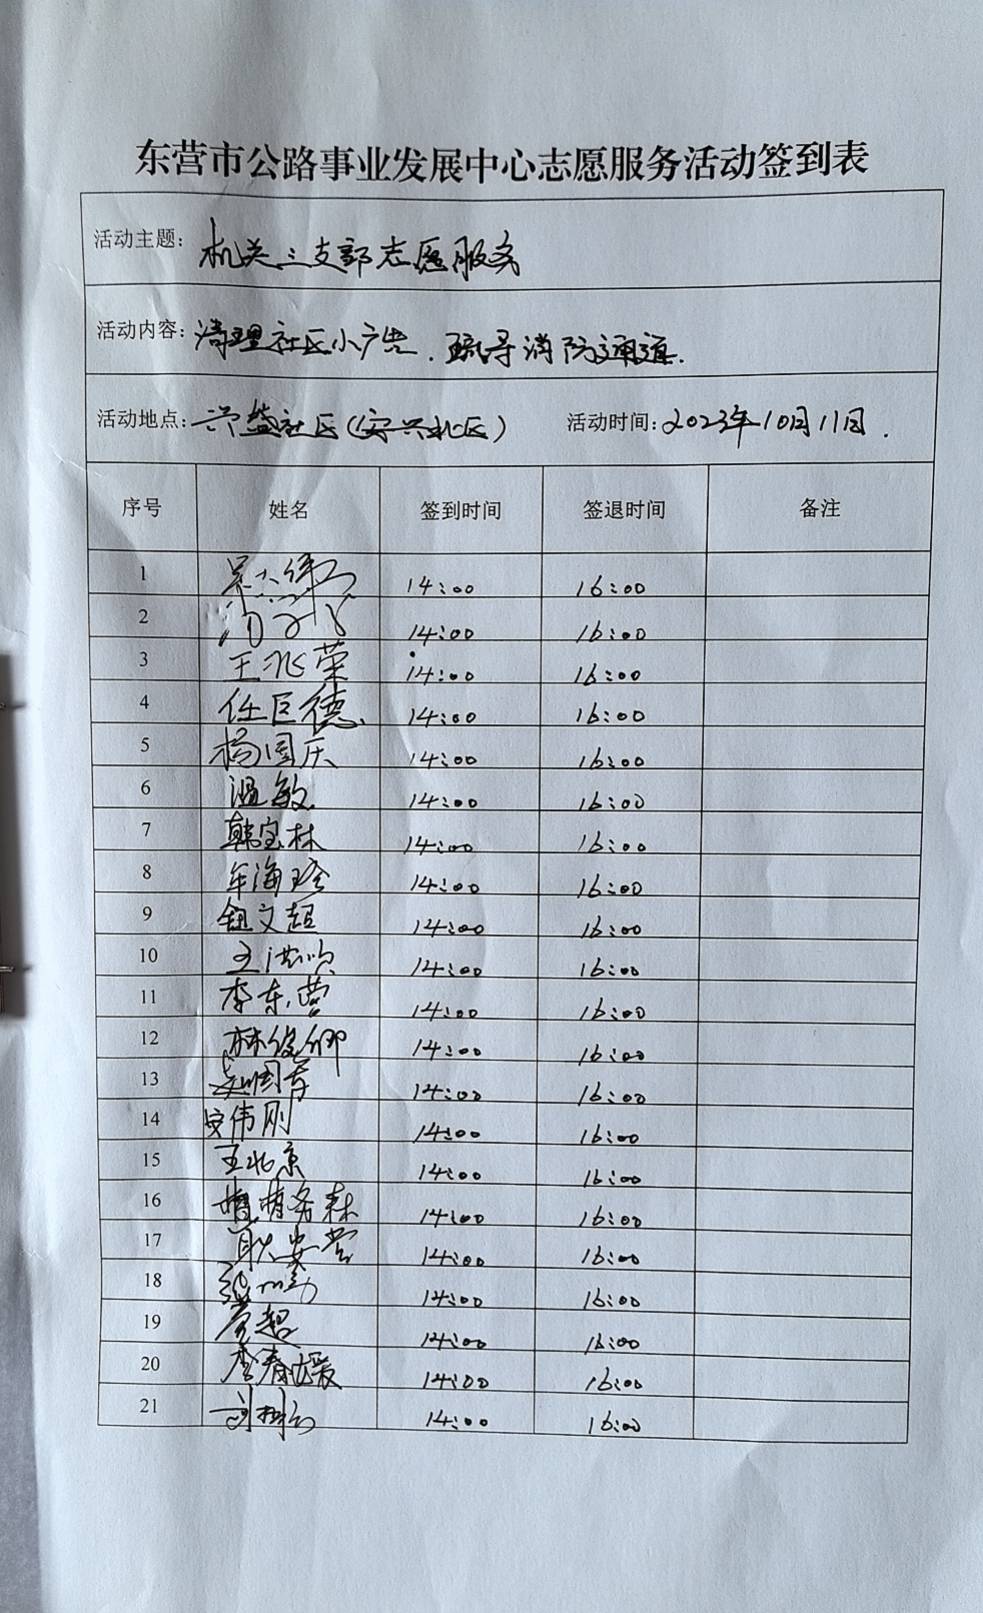 东营市公路事业发展中心志愿服务活动签到表
活动主题: 机关三支部志愿服务
活动内容: 清理社区小广告、疏导消防通道.
活动地点: 兴盛社区(安兴北区) 活动时间: 2023年10月11日.
序号 姓名 签到时间 签退时间 备注
1 14:00 16:00
2 14:00 16:00
3 王兆荣 14:00 16:00
4 任巨德 14:00 16:00
5 杨国庆 14:00 16:00
6 温敏 14:00 16:00
7 韩宝林 14:00 16:00
8 牟海珍 14:00 16:00
9 钮文超 14:00 16:00
10 王洪 14:00 16:00
11 李东营 14:00 16:00
12 林俊卿 14:00 16:00
13 14:00 16:00
14 安伟刚 14:00 16:00
15 王北京 14:00 16:00
16 14:00 16:00
17 耿安营 14:00 16:00
18 14:00 16:00
19 超 14:00 16:00
20 李春媛 14:00 16:00
21 14:00 16:00